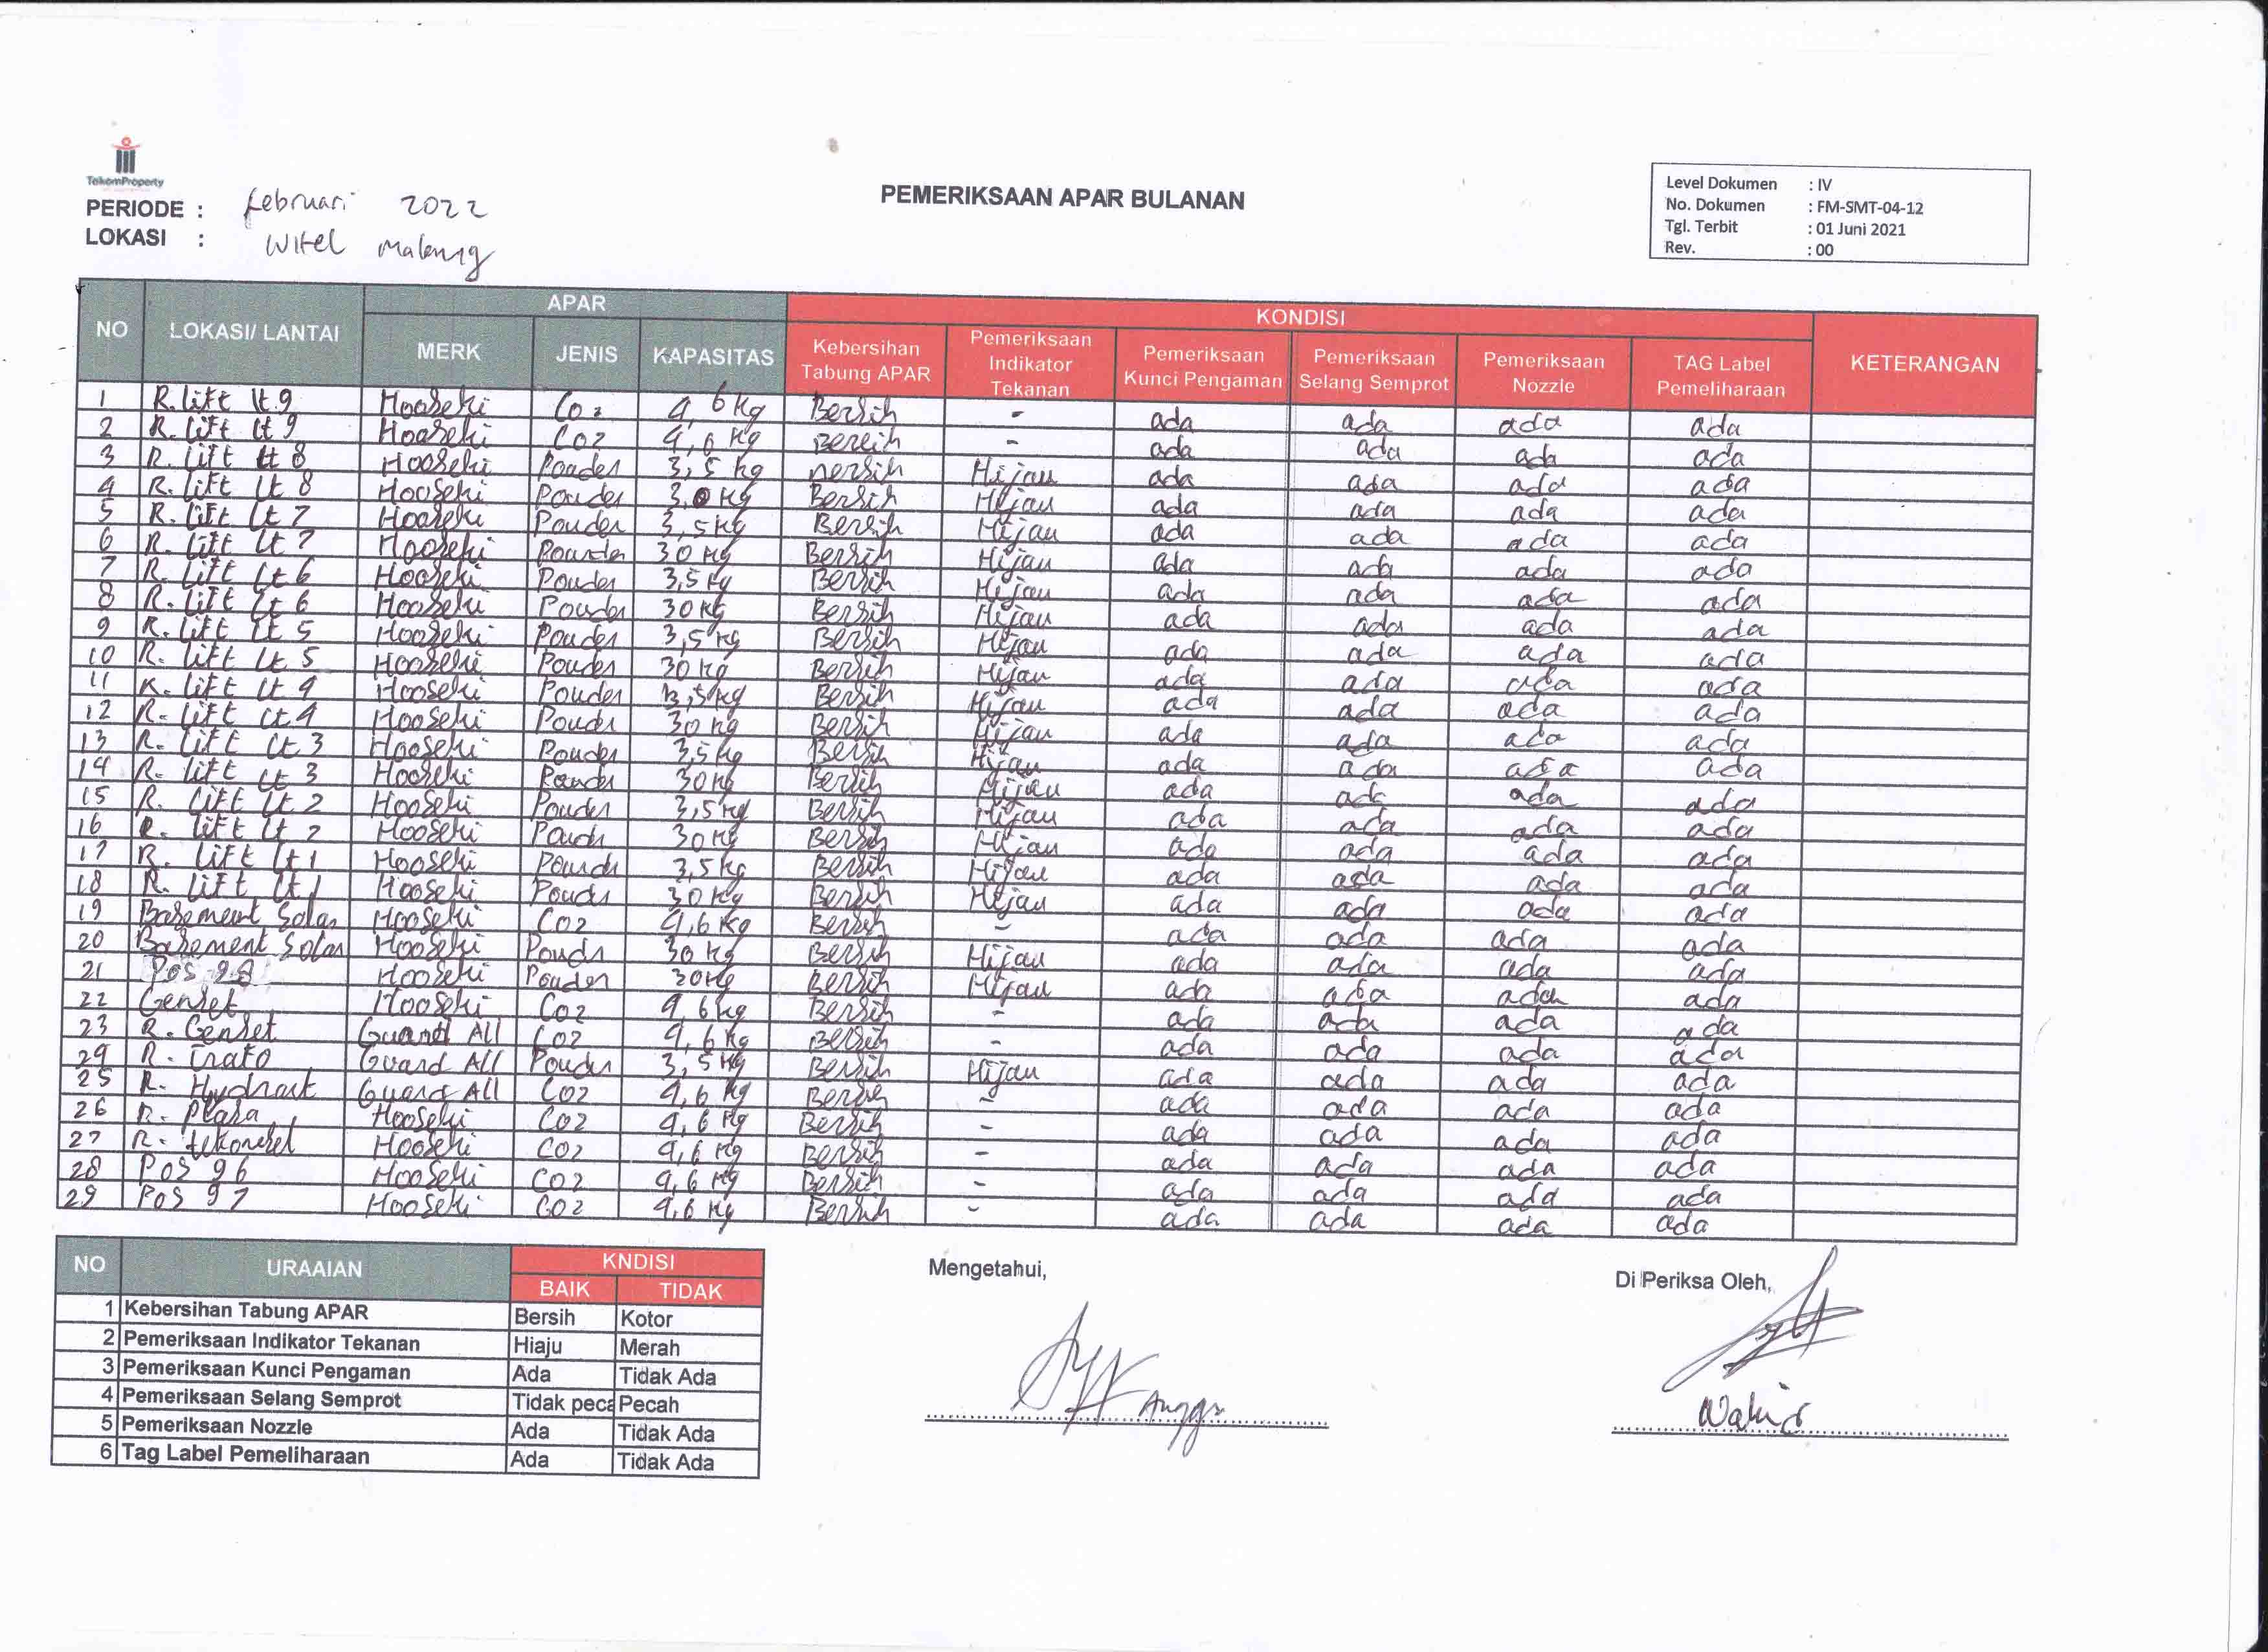 TelkomProperty
PERIODE : Februari 2022
LOKASI : Witel Malang
PEMERIKSAAN APAR BULANAN
Level Dokumen : IV
No. Dokumen : FM-SMT-04-12
Tgl. Terbit : 01 Juni 2021
Rev. : 00
NO LOKASI/ LANTAI APAR KONDISI KETERANGAN
MERK JENIS KAPASITAS Kebersihan Tabung APAR Pemeriksaan Indikator Tekanan Pemeriksaan Kunci Pengaman Pemeriksaan Selang Semprot Pemeriksaan Nozzle TAG Label Pemeliharaan
1 R. lift lt 9 Hooseki Co2 4,6 Kg Bersih - ada ada ada ada
2 R. lift lt 9 Hooseki CO2 4,6 Kg Bersih - ada ada ada ada
3 R. lift lt 8 Hooseki Pouder 3,5 kg Bersih Hijau ada ada ada ada
4 R. lift lt 8 Hooseki Pouder 3,0 Kg Bersih Hijau ada ada ada ada
5 R. lift lt 7 Hooseki Pouder 3,5 kg Bersih Hijau ada ada ada ada
6 R. lift lt 7 Hooseki Pouder 30 Kg Bersih Hijau ada ada ada ada
7 R. lift lt 6 Hooseki Pouder 3,5 Kg Bersih Hijau ada ada ada ada
8 R. lift lt 6 Hooseki Pouder 30 Kg Bersih Hijau ada ada ada ada
9 R. lift lt 5 Hooseki Pouder 3,5 kg Bersih Hijau ada ada ada ada
10 R. lift lt 5 Hooseki Pouder 30 kg Bersih Hijau ada ada ada ada
11 R. lift lt 4 Hooseki Pouder 3,5 kg Bersih Hijau ada ada ada ada
12 R. lift lt 4 Hooseki Pouder 30 kg Bersih Hijau ada ada ada ada
13 R. lift lt 3 Hooseki Pouder 3,5 kg Bersih Hijau ada ada ada ada
14 R. lift lt 3 Hooseki Pouder 30 kg Bersih Hijau ada ada ada ada
15 R. lift lt 2 Hooseki Pouder 3,5 kg Bersih Hijau ada ada ada ada
16 R. lift lt 2 Hooseki Poudr 30 Kg Bersih Hijau ada ada ada ada
17 R. lift lt 1 Hooseki Poudr 3,5 kg Bersih Hijau ada ada ada ada
18 R. lift lt 1 Hooseki Poudr 30 Kg Bersih Hijau ada ada ada ada
19 Basement Solar Hooseki CO2 4,6 Kg Bersih - ada ada ada ada
20 Basement Solar Hooseki Poudr 30 kg Bersih Hijau ada ada ada ada
21 Pos Hooseki Pouder 30 Kg Bersih Hijau ada ada ada ada
22 Genset Hooseki CO2 4,6 kg Bersih - ada ada ada ada
23 R. Genset Guard All CO2 4,6 Kg Bersih - ada ada ada ada
24 R. Trafo Guard All Pouder 3,5 Kg Bersih Hijau ada ada ada ada
25 R. Hydrant Guard All CO2 4,6 Kg Bersih - ada ada ada ada
26 R. Plasa Hooseki CO2 4,6 Kg Bersih - ada ada ada ada
27 R. Hooseki CO2 4,6 Kg Bersih - ada ada ada ada
28 Pos 96 Hooseki CO2 4,6 Kg Bersih - ada ada ada ada
29 Pos 97 Hooseki CO2 4,6 Kg Bersih - ada ada ada ada
NO URAAIAN KNDISI
BAIK TIDAK
1 Kebersihan Tabung APAR Bersih Kotor
2 Pemeriksaan Indikator Tekanan Hiaju Merah
3 Pemeriksaan Kunci Pengaman Ada Tidak Ada
4 Pemeriksaan Selang Semprot Tidak peca Pecah
5 Pemeriksaan Nozzle Ada Tidak Ada
6 Tag Label Pemeliharaan Ada Tidak Ada
Mengetahui,
Angga
Di Periksa Oleh,
Wahid